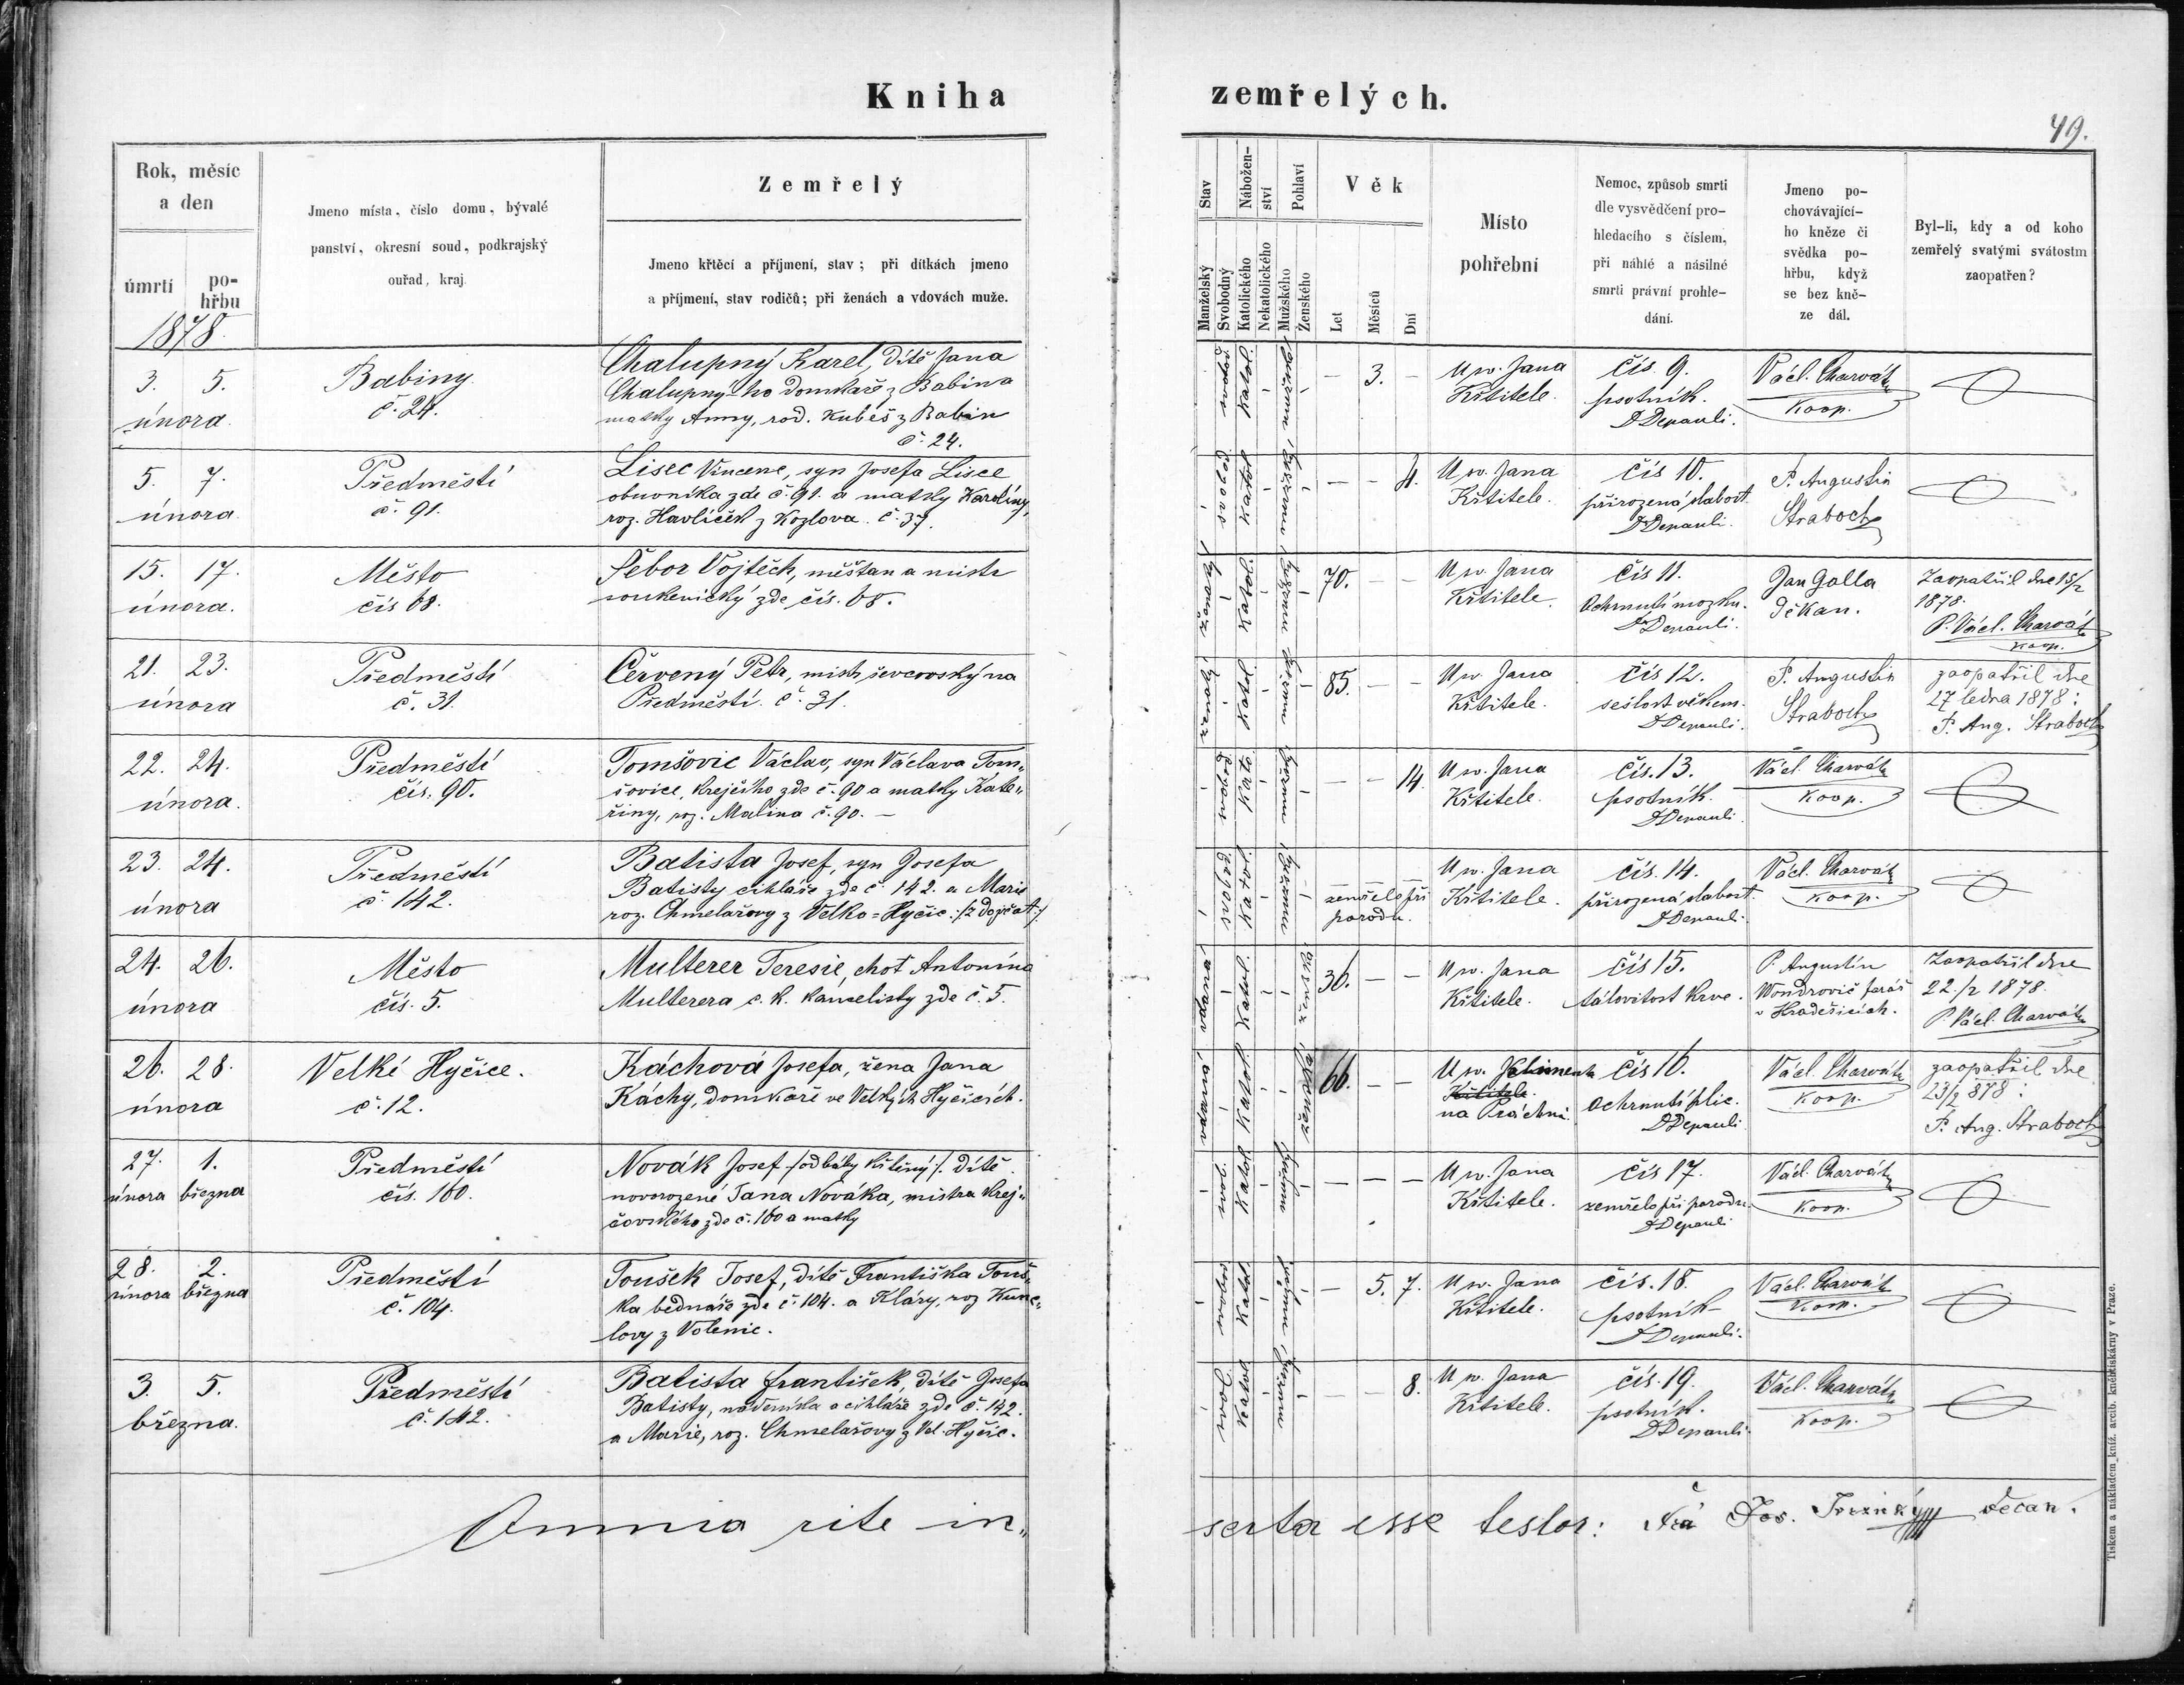 Kniha zemřelých.
49.
Rok, měsíc
a den
úmrtí
po-
hřbu
1878.
Jmeno místa, číslo domu, bývalé
panství, okresní soud, podkrajský
ouřad, kraj.
Zemřelý
Jmeno křtěcí a příjmení, stav; při dítkách jmeno
a příjmení, stav rodičů; při ženách a vdovách muže.
Stav
Manželský
Svobodný
Nábožen-
ství
Katolického
Nekatolického
Pohlaví
Mužského
Ženského
Věk
Let
Měsíců
Dní
Místo
pohřební
Nemoc, způsob smrti
dle vysvědčení pro-
hledacího s číslem,
při náhlé a násilné
smrti právní prohle-
dání.
Jmeno po-
chovávající-
ho kněze či
svědka po-
hřbu, když
se bez kně-
ze dál.
Byl-li, kdy a od koho
zemřelý svatými svátostm
zaopatřen?
3. 5.
února
Babiny
č. 24.
Chalupný Karel, dítě Jana
Chalupný-ho domkáře z Babina
matky Anny, rod. Kubeš z Babin
č. 24.
svobod
Katol.
— 3. —
U sv. Jana
Křtitele.
čís. 9.
psotník.
D Depauli.
Václ. Charvát
Koop.
5. 7.
února
Předměstí
č. 91.
Lisec Vincenc, syn Josefa Lisce
obuvníka zde č. 91. a matky Karolíny,
roz. Havlíček z Kozlova č. 37.
svobod
Katol
— — 4.
U sv. Jana
Křtitele.
čís 10.
přirozená slabost.
D Depauli.
P. Augustin
Straboch
15. 17.
února.
Město
čís 68.
Febor Vojtěch, měštan a mistr
soukenický zde čís. 68.
ženatý
Katol.
70. — —
U sv. Jana
Křtitele.
čís 11.
Ochrnutí mozku.
D Depauli.
Jan Galla
děkan.
Zaopatřil dne 15/2
1878.
P. Václ. Charvát
koop.
21. 23.
února
Předměstí
č. 31.
Červený Petr, mistr ševcovský na
Předměstí č. 31.
ženatý
Katol.
85. — —
U sv. Jana
Křtitele.
čís 12.
sešlost věkem.
D Depauli.
P. Augustin
Straboch
zaopatřil dne
27 ledna 1878:
P. Aug. Straboch
22. 24.
února.
Předměstí
čís. 90.
Tomšovic Václav, syn Václava Tom„
šovice, krejčího zde č. 90 a matky Kate„
řiny, roz. Malina č. 90. —
svobod
Kato.
— — 14.
U sv. Jana
Křtitele.
čís. 13.
psotník.
D Depauli.
Václ. Charvát
Koop.
23. 24.
února
Předměstí
č. 142.
Batista Josef, syn Josefa
Batisty cihláře zde č. 142. a Marie
roz. Chmelařovy z Velko=Hyčic. /: z dvojčat :/
svobod
Katol.
zemřelo při
porodu.
U sv. Jana
Křtitele.
čís. 14.
přirozená slabost.
D Depauli.
Václ. Charvát
koop.
24. 26.
února
Město
čís. 5.
Multerer Teresie, choť Antonína
Multerera c. k. kancelisty zde č. 5.
vdaná
Katol.
36. — —
U sv. Jana
Křtitele.
čís 15.
tálovitost krve.
P. Augustin
Wondrovič farář
v Hradešicích.
Zaopatřil dne
22./2 1878.
P. Václ. Charvát
26. 28.
února
Velké Hyčice.
č. 12.
Káchová Josefa, žena Jana
Káchy, domkáře ve Velkých Hyčicích.
vdaná
Katol.
66. — —
U sv. Klimenta
Křtitele.
na Práchni
čís 16.
Ochrnutí plic.
D Depauli
Václ. Charvát
Koop.
zaopatřil dne
23/2 878:
P. Aug. Straboch
27. 1.
února března
Předměstí
čís. 160.
Novák Josef /: od báby křtěný :/. dítě
novorozené Jana Nováka, mistra krej„
čovského zde č. 160 a matky
svob.
Katol
— — —
U sv. Jana
Křtitele.
čís 17.
zemřelo při porodu.
D Depauli
Václ. Charvát
Koop.
28. 2.
února března
Předměstí
č. 104.
Toušek Josef, dítě Františka Touš„
ka bednáře zde č. 104. a Kláry, roz Kune„
lovy z Volenic.
svobod
Katol.
— 5. 7.
U sv. Jana
Křtitele.
čís. 18.
psotník
D Depauli.
Václ. Charvát
Koop.
3. 5.
března.
Předměstí
č. 142.
Batista František, dítě Josefa
Batisty, nádeníka a cihláře zde č. 142.
a Marie, roz. Chmelařovy z Vel. Hyčic.
svob.
Katol
— — 8.
U sv. Jana
Křtitele.
čís. 19.
psotník.
D Depauli.
Václ. Charvát
Koop.
Omnia rite in„
serta esse testor: Jos. děcan.
Tiskem a nákladem kníž. arcib. knihtiskárny v Praze.